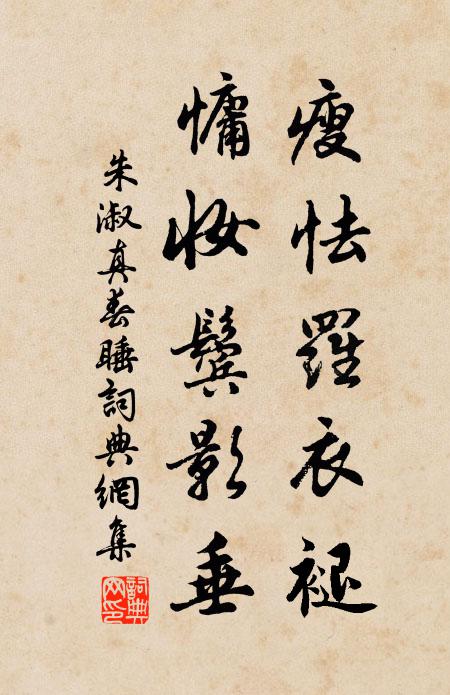 瘦怯羅衣褪
慵妝鬢影垂
朱淑真春睡詞典網集
詞典網印